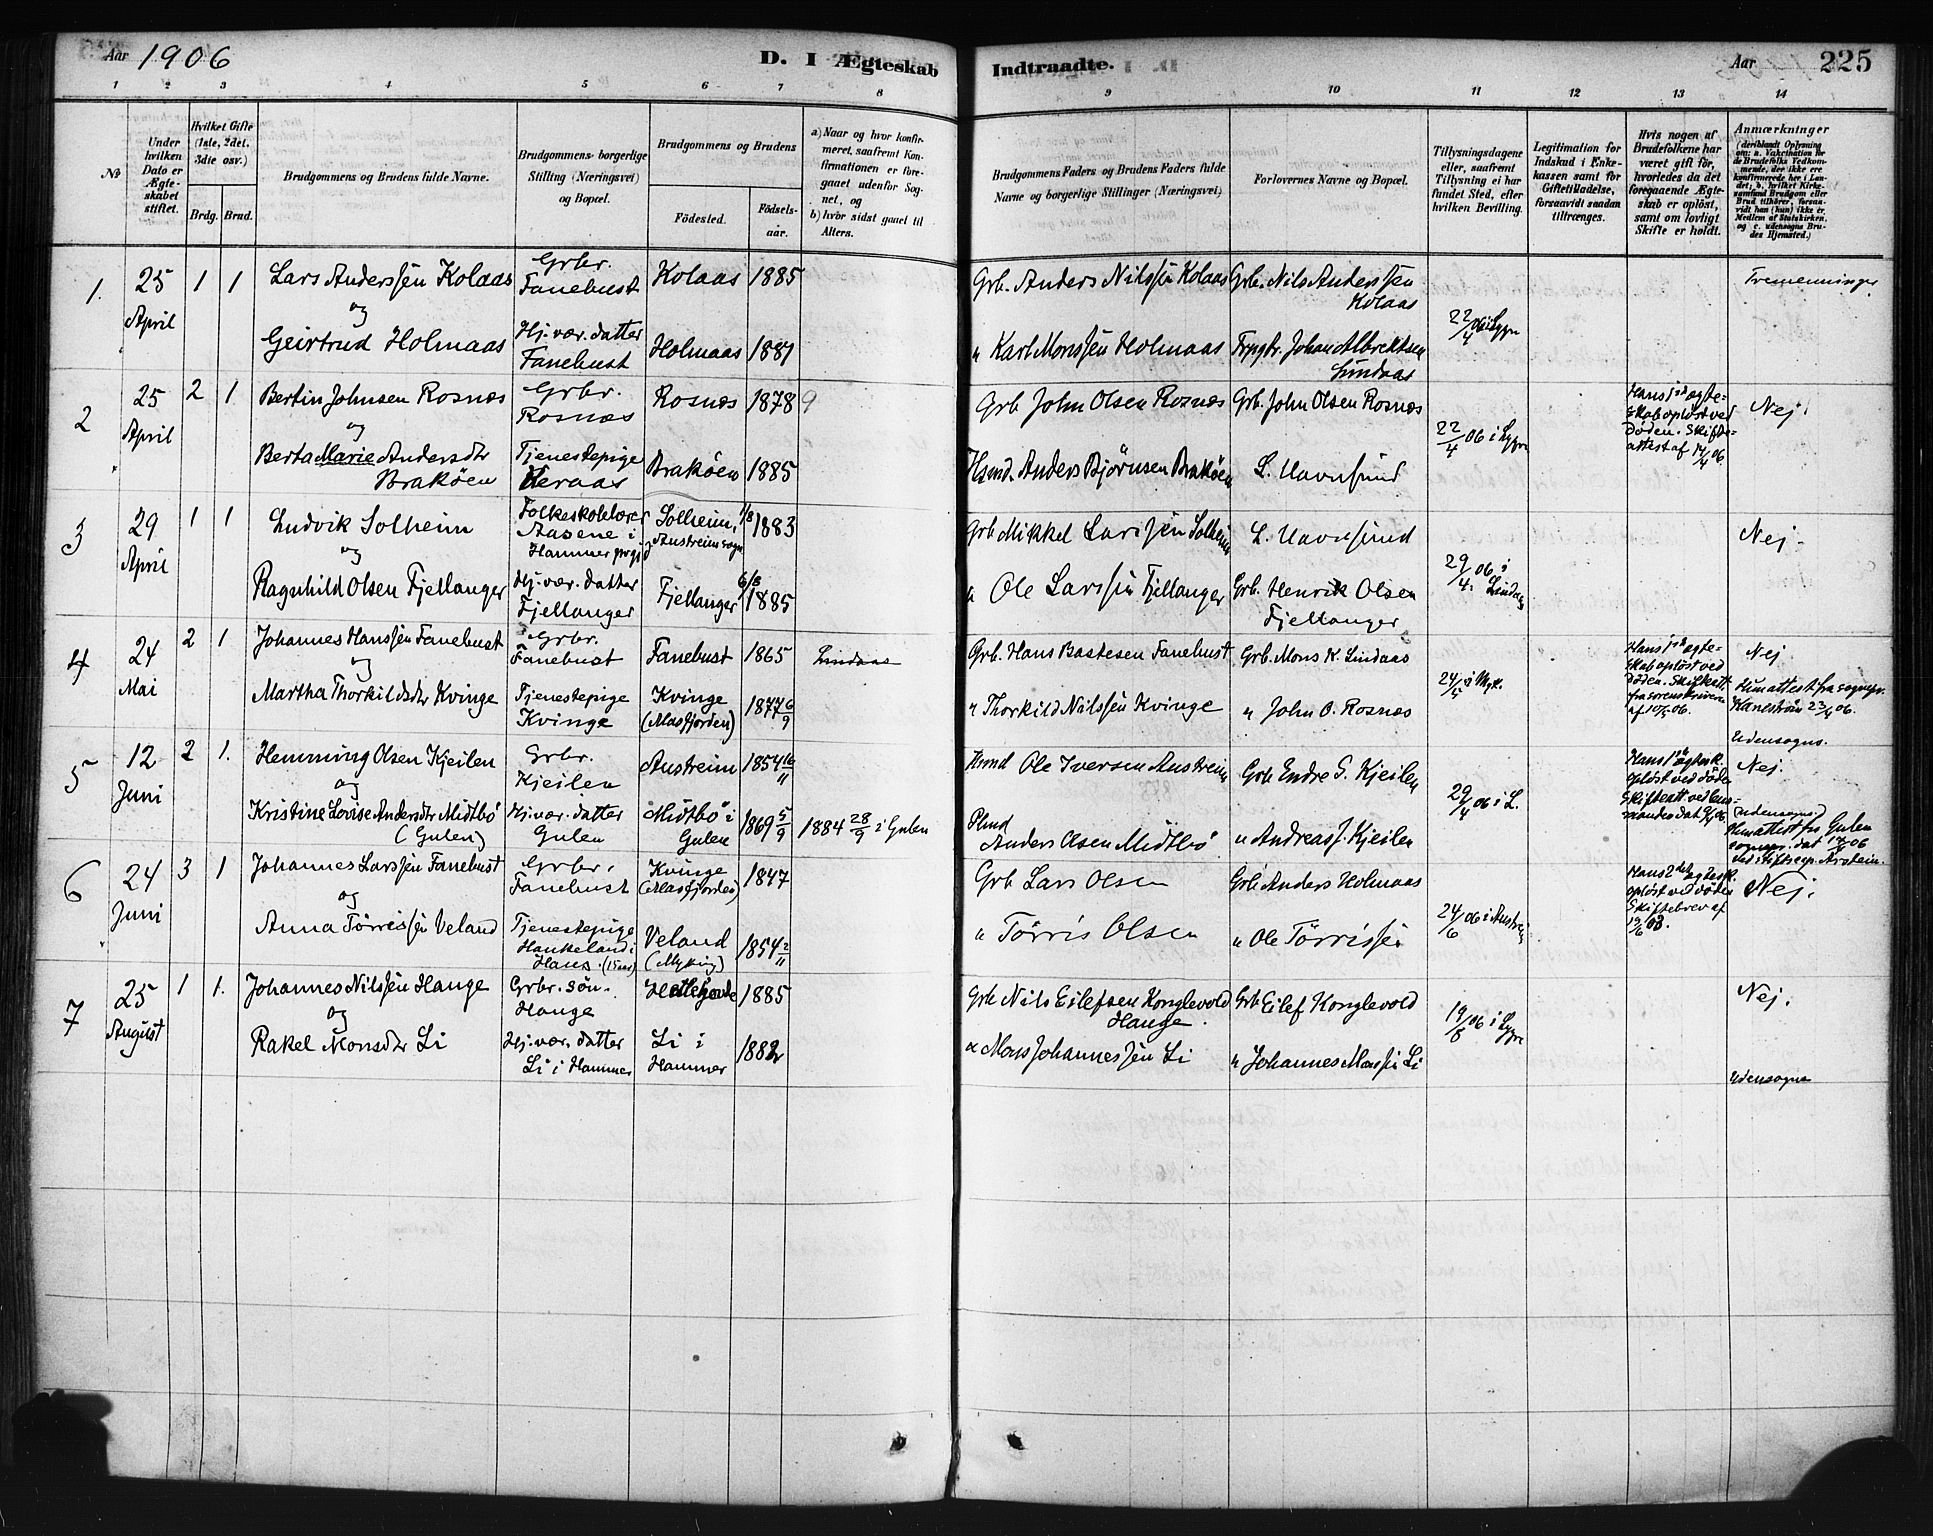 Aar 1906
D. I Ægteskab Indtraadte.
Aar 225
1 2 3 4 5 6 7 8 9 10 11 12 13 14
No
Under hvilken Dato er Ægteskabet stiftet.
Hvilket Gifte (1ste, 2det, 3die osv.)
Brdg. Brud.
Brudgommens og Brudens fulde Navne.
Brudgommens borgerlige Stilling (Næringsvei) og Bopæl.
Brudgommens og Brudens
Fødested.
Fødselsaar.
a) Naar og hvor konfirmeret, saafremt Konfirmationen er foregaaet udenfor Sognet, og
b) hvor sidst gaaet til Alters.
Brudgommens Faders og Brudens Faders fulde Navne og borgerlige Stillinger (Næringsvei)
Forlovernes Navne og Bopæl.
Tillysningsdagene eller, saafremt Tillysning ei har fundet Sted, efter hvilken Bevilling.
Legitimation for Indskud i Enkekassen samt for Giftetilladelse, forsaavidt saadan tiltrænges.
Hvis nogen af Brudefolkene har været gift før, hvorledes da det foregaaende Ægteskab er opløst, samt om lovligt Skifte er holdt.
Anmærkninger
(deriblandt Oplysning om: a. Vakcination for de Brudefolks Vedkommende, der ikke ere konfirmerede her i Landet; b. hvilket Kirkesamfund Brudgom eller Brud tilhører, forsaavidt han (hun) ikke er Medlem af Statskirken, og c. udensogns Brudes Hjemsted.)
1. 25 April 1 1 Lars Anderssen Kolaas Grbr. Fanebust Kolaas 1885 Grb. Anders Nilssen Kolaas Grb. Nils Anderssen Kolaas 22/4 06 i Lygre Tremenninger
og
Geirtrud Holmaas Hj.vær. datter Fanebust Holmaas 1881 " Karl Monssen Holmaas Johan Albrektsen Lindaas
2 25 April 2 1 Bertin Johnsen Rosnæs Grbr. Rosnæs Rosnæs 1878 9 Grb John Olsen Rosnæs Grb. John Olsen Rosnæs 22/4 06 i Lygre Hans 1ste ægteskab opløst ved Døden. Skifteattest af 17/4 06. Nej.
og
Berta Marie Andersdtr Brakøen Tjenestepige Keraas Brakøen 1885 Hsmd. Anders Bjørnsen Brakøen L. Havnsund
3 29 April 1 1 Ludvik Solheim Folkeskolelærer Aasene i Hammer prgjd Solheim, Austreim sogn 7/8 1883 Grb Mikkel Larssen Solheim L. Havnsund 29/4 06 i Lindaas Nej.
og
Ragnhild Olsen Fjellanger Hj.vær. datter Fjellanger Fjellanger 6/8 1885 " Ole Larssen Fjellanger Grb. Henrik Olsen Fjellanger
4 24 Mai 2 1 Johannes Hanssen Fanebust Grbr. Fanebust Fanebust 1865 Lindaas Grb. Hans Bastesen Fanebust Grb. Mons K. Lindaas 24/5 i Myk. Hans 1ste ægteskab opløst ved Døden. Skifteatt. fra sorenskriveren af 10/5 06. Nej
og
Martha Thorkildsdtr Kvinge Tjenestepige Kvinge Kvinge (Masfjorden) 1877 6/9 " Thorkild Nilssen Kvinge " John O. Rosnæs Hun attest fra sognepr. Kanestrøm 23/4 06. Udensogns.
5 12 Juni 2 1. Hemming Olsen Kjeilen Grbr. Kjeilen Austreim 1854 16/11 Hsmd Ole Iversen Austreim Grb Endre S. Kjeilen 29/4 06 i L. Nej.
og
Kristine Lovise Andersdtr Midtbø (Gulen) Hj.vær. datter Gulen Midtbø i Gulen 1869 5/9 1884 28/9 i Gulen Anders Olsen Midtbø " Andreas J. Kjeilen (udensogns) Hun attest fra Gulen
6 24 Juni 3 1 Johannes Larssen Fanebust Grbr. Fanebust Kvinge (Masfjorden) 1847 Grb Lars Olsen Grb Anders Holmaas 24/6 06 i Austreim Hans 2det ægtesk. opløst ved døden Skiftebrev af 19/6 03. Nej.
og
Anna Tørrissen Veland Tjenestepige Haukeland i Haus. (15 aar) Veland (Myking) 1854 2/11 " Tørris Olsen " Ole Tørrissen
7 25 August 1 1. Johannes Nilssen Hauge Grbr. søn. Hauge 1885 Grb Nils Eilefsen Konglevold Hauge. Grb Eilef Konglevold 19/8 06 i Lygre Nej.
og
Rakel Monsdtr Li Hj.vær. datter Li i Hammer Li i Hammer 1882 " Mons Johannessen Li " Johannes Monssen Li Udensogns